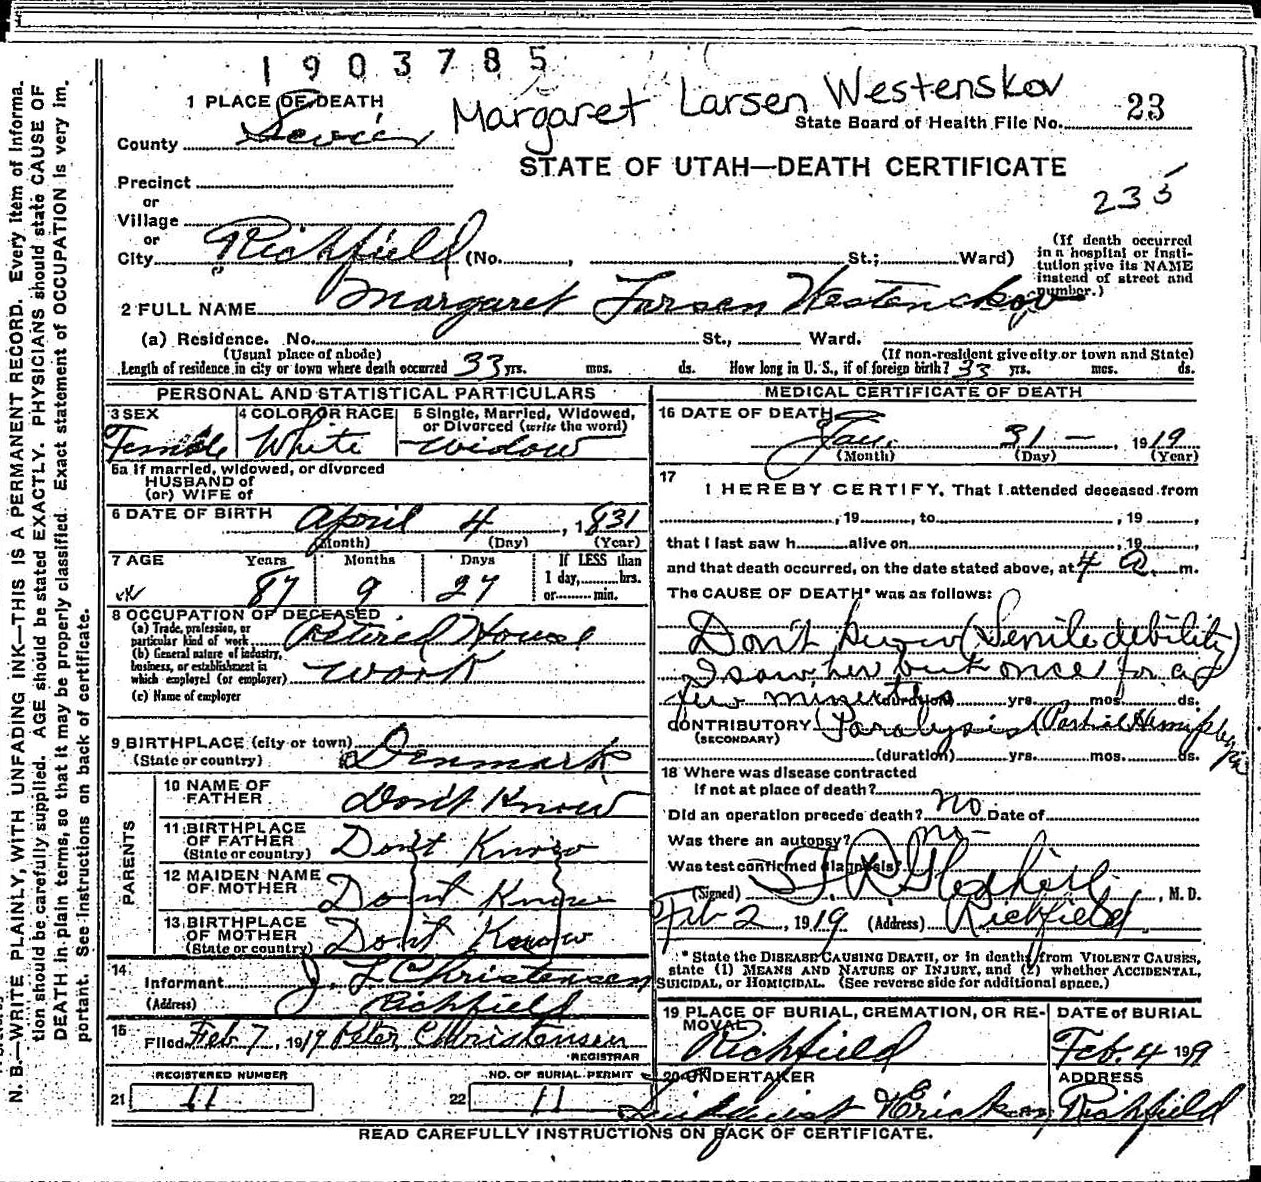 1903785
Margaret Larsen Westenskov
1 PLACE OF DEATH
County Sevier
State Board of Health File No. 23
STATE OF UTAH—DEATH CERTIFICATE
235
Precinct
or
Village
or
City Richfield (No. , St.; Ward)
(If death occurred in a hospital or institution give its NAME instead of street and number.)
2 FULL NAME Margaret Larsen Westenskov
(a) Residence. No. St., Ward.
(Usual place of abode) (If non-resident give city or town and State)
Length of residence in city or town where death occurred 33 yrs. mos. ds. How long in U. S., if of foreign birth? 33 yrs. mos. ds.
PERSONAL AND STATISTICAL PARTICULARS
3 SEX
Female
4 COLOR OR RACE
White
5 Single, Married, Widowed, or Divorced (write the word)
Widow
5a If married, widowed, or divorced
HUSBAND of
(or) WIFE of
6 DATE OF BIRTH April 4, 1831
(Month) (Day) (Year)
7 AGE Years Months Days If LESS than
87 9 27 1 day, hrs.
or min.
8 OCCUPATION OF DECEASED
(a) Trade, profession, or particular kind of work Retired House
(b) General nature of industry, business, or establishment in which employed (or employer) work
(c) Name of employer
9 BIRTHPLACE (city or town)
(State or country) Denmark
PARENTS
10 NAME OF FATHER Don't Know
11 BIRTHPLACE OF FATHER (State or country) Don't Know
12 MAIDEN NAME OF MOTHER Don't Know
13 BIRTHPLACE OF MOTHER (State or country) Don't Know
14
Informant J. L. Christensen
(Address) Richfield
15
Filed Feb 7, 1919 Peter Christensen
REGISTRAR
REGISTERED NUMBER
21 11
NO. OF BURIAL PERMIT
22 11
MEDICAL CERTIFICATE OF DEATH
16 DATE OF DEATH
Jan. 31 — 1919
(Month) (Day) (Year)
17
I HEREBY CERTIFY, That I attended deceased from
, 19 , to , 19 ,
that I last saw h alive on , 19 ,
and that death occurred, on the date stated above, at 4 a. m.
The CAUSE OF DEATH* was as follows:
Don't know (Senile debility)
I saw her but once for a
few minutes
(duration) yrs. mos. ds.
CONTRIBUTORY Paralysis (Partial Hemiplegia
(SECONDARY)
(duration) yrs. mos. ds.
18 Where was disease contracted
if not at place of death?
Did an operation precede death? no Date of
Was there an autopsy? no
Was test confirmed diagnosis?
(Signed) , M. D.
Feb 2, 1919 (Address) Richfield
* State the DISEASE CAUSING DEATH, or in deaths from VIOLENT CAUSES,
state (1) MEANS AND NATURE OF INJURY, and (2) whether ACCIDENTAL,
SUICIDAL, or HOMICIDAL. (See reverse side for additional space.)
19 PLACE OF BURIAL, CREMATION, OR REMOVAL
Richfield
DATE OF BURIAL
Feb. 4 1919
20 UNDERTAKER
ADDRESS
Richfield
READ CAREFULLY INSTRUCTIONS ON BACK OF CERTIFICATE.
N. B.—WRITE PLAINLY, WITH UNFADING INK—THIS IS A PERMANENT RECORD. Every item of informa-
tion should be carefully supplied. AGE should be stated EXACTLY. PHYSICIANS should state CAUSE OF
DEATH in plain terms, so that it may be properly classified. Exact statement of OCCUPATION is very im-
portant. See Instructions on back of certificate.